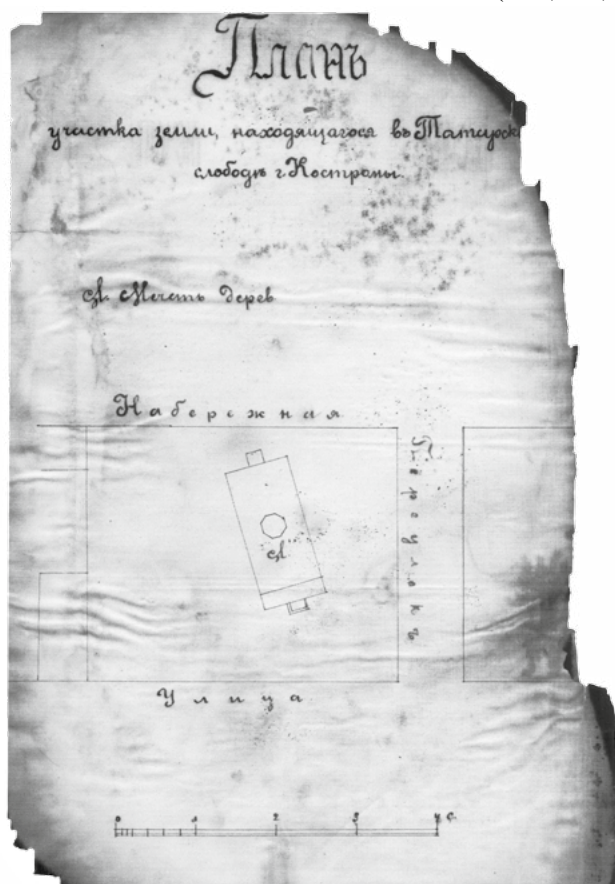 Планъ
участка земли, находящагося въ Татарск
слободѣ г. Костромы.
М. Мечеть дерев
Набережная
Переулокъ
М.
Улица
0 1 2 3 4 с.